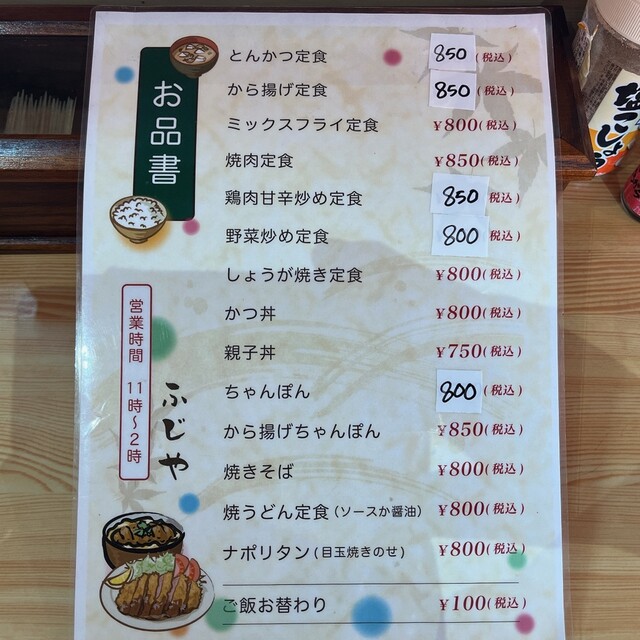 お品書
とんかつ定食 850(税込)
から揚げ定食 850(税込)
ミックスフライ定食 ¥800(税込)
焼肉定食 ¥850(税込)
鶏肉甘辛炒め定食 850(税込)
野菜炒め定食 800(税込)
しょうが焼き定食 ¥800(税込)
かつ丼 ¥800(税込)
親子丼 ¥750(税込)
ちゃんぽん 800(税込)
から揚げちゃんぽん ¥850(税込)
焼きそば ¥800(税込)
焼うどん定食(ソースか醤油) ¥800(税込)
ナポリタン(目玉焼きのせ) ¥800(税込)
ご飯お替わり ¥100(税込)
営業時間 11時~2時
ふじや
塩こしょう